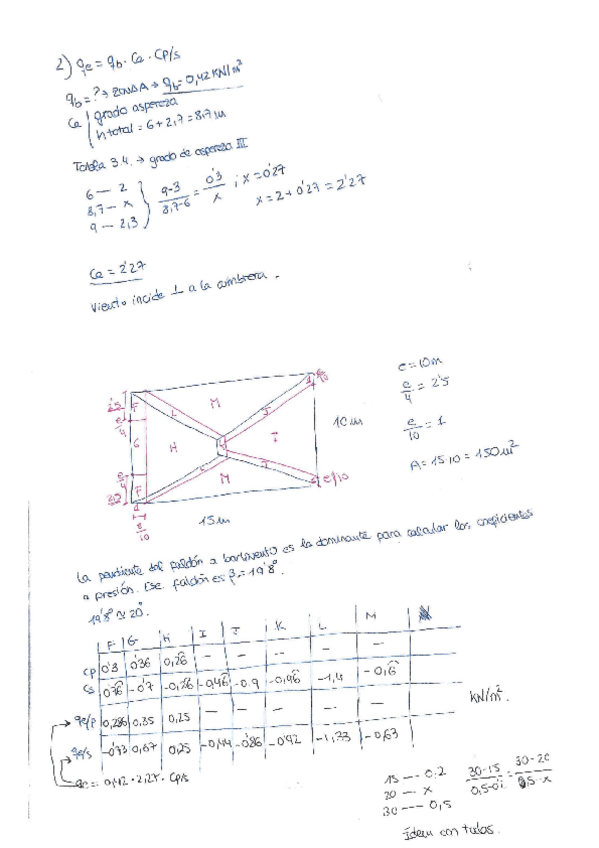 2) qe = qb · Ce · Cp/s
qb = ? → ZONA A → qb = 0,42 KN/m²
Ce | grado aspereza
h total = 6 + 2,7 = 8,7 m
Tabla 3.4. → grado de aspereza III
6 — 2
8,7 — x
9 — 2,3
9-3 / 8,7-6 = 0'3 / x ; x = 0'27
x = 2 + 0'27 = 2'27
Ce = 2'27
Viento incide ⊥ a la cumbrera.
e = 10m
e/4 = 2'5
e/10 = 1
A = 15·10 = 150 m²
F L M J e/10
e/4 G H I 10 m
e/4 F L M J e/10
e/10
15 m
La pendiente del faldón a barlovento es la dominante para calcular los coeficientes
a presión. Ese faldón es β = 19'8°.
19'8° ≈ 20°.
F G H I J K L M
Cp 0'3 0'36 0,26 – – -- – –
Cs -0'7 -0,26 -0,46 -0.9 -0,46 -1,4 -0,6
qe/p 0,286 0,35 0,25 – – -- – –
KN/m².
qe/s -0'73 0,67 0,25 -0,44 -0'86 -0'42 -1,33 -0,63
qe = 0,42 · 2,27 · Cp/s
15 --- 0,2
20 — x
30 --- 0,5
30-15 = 30-20
Ídem con todos.